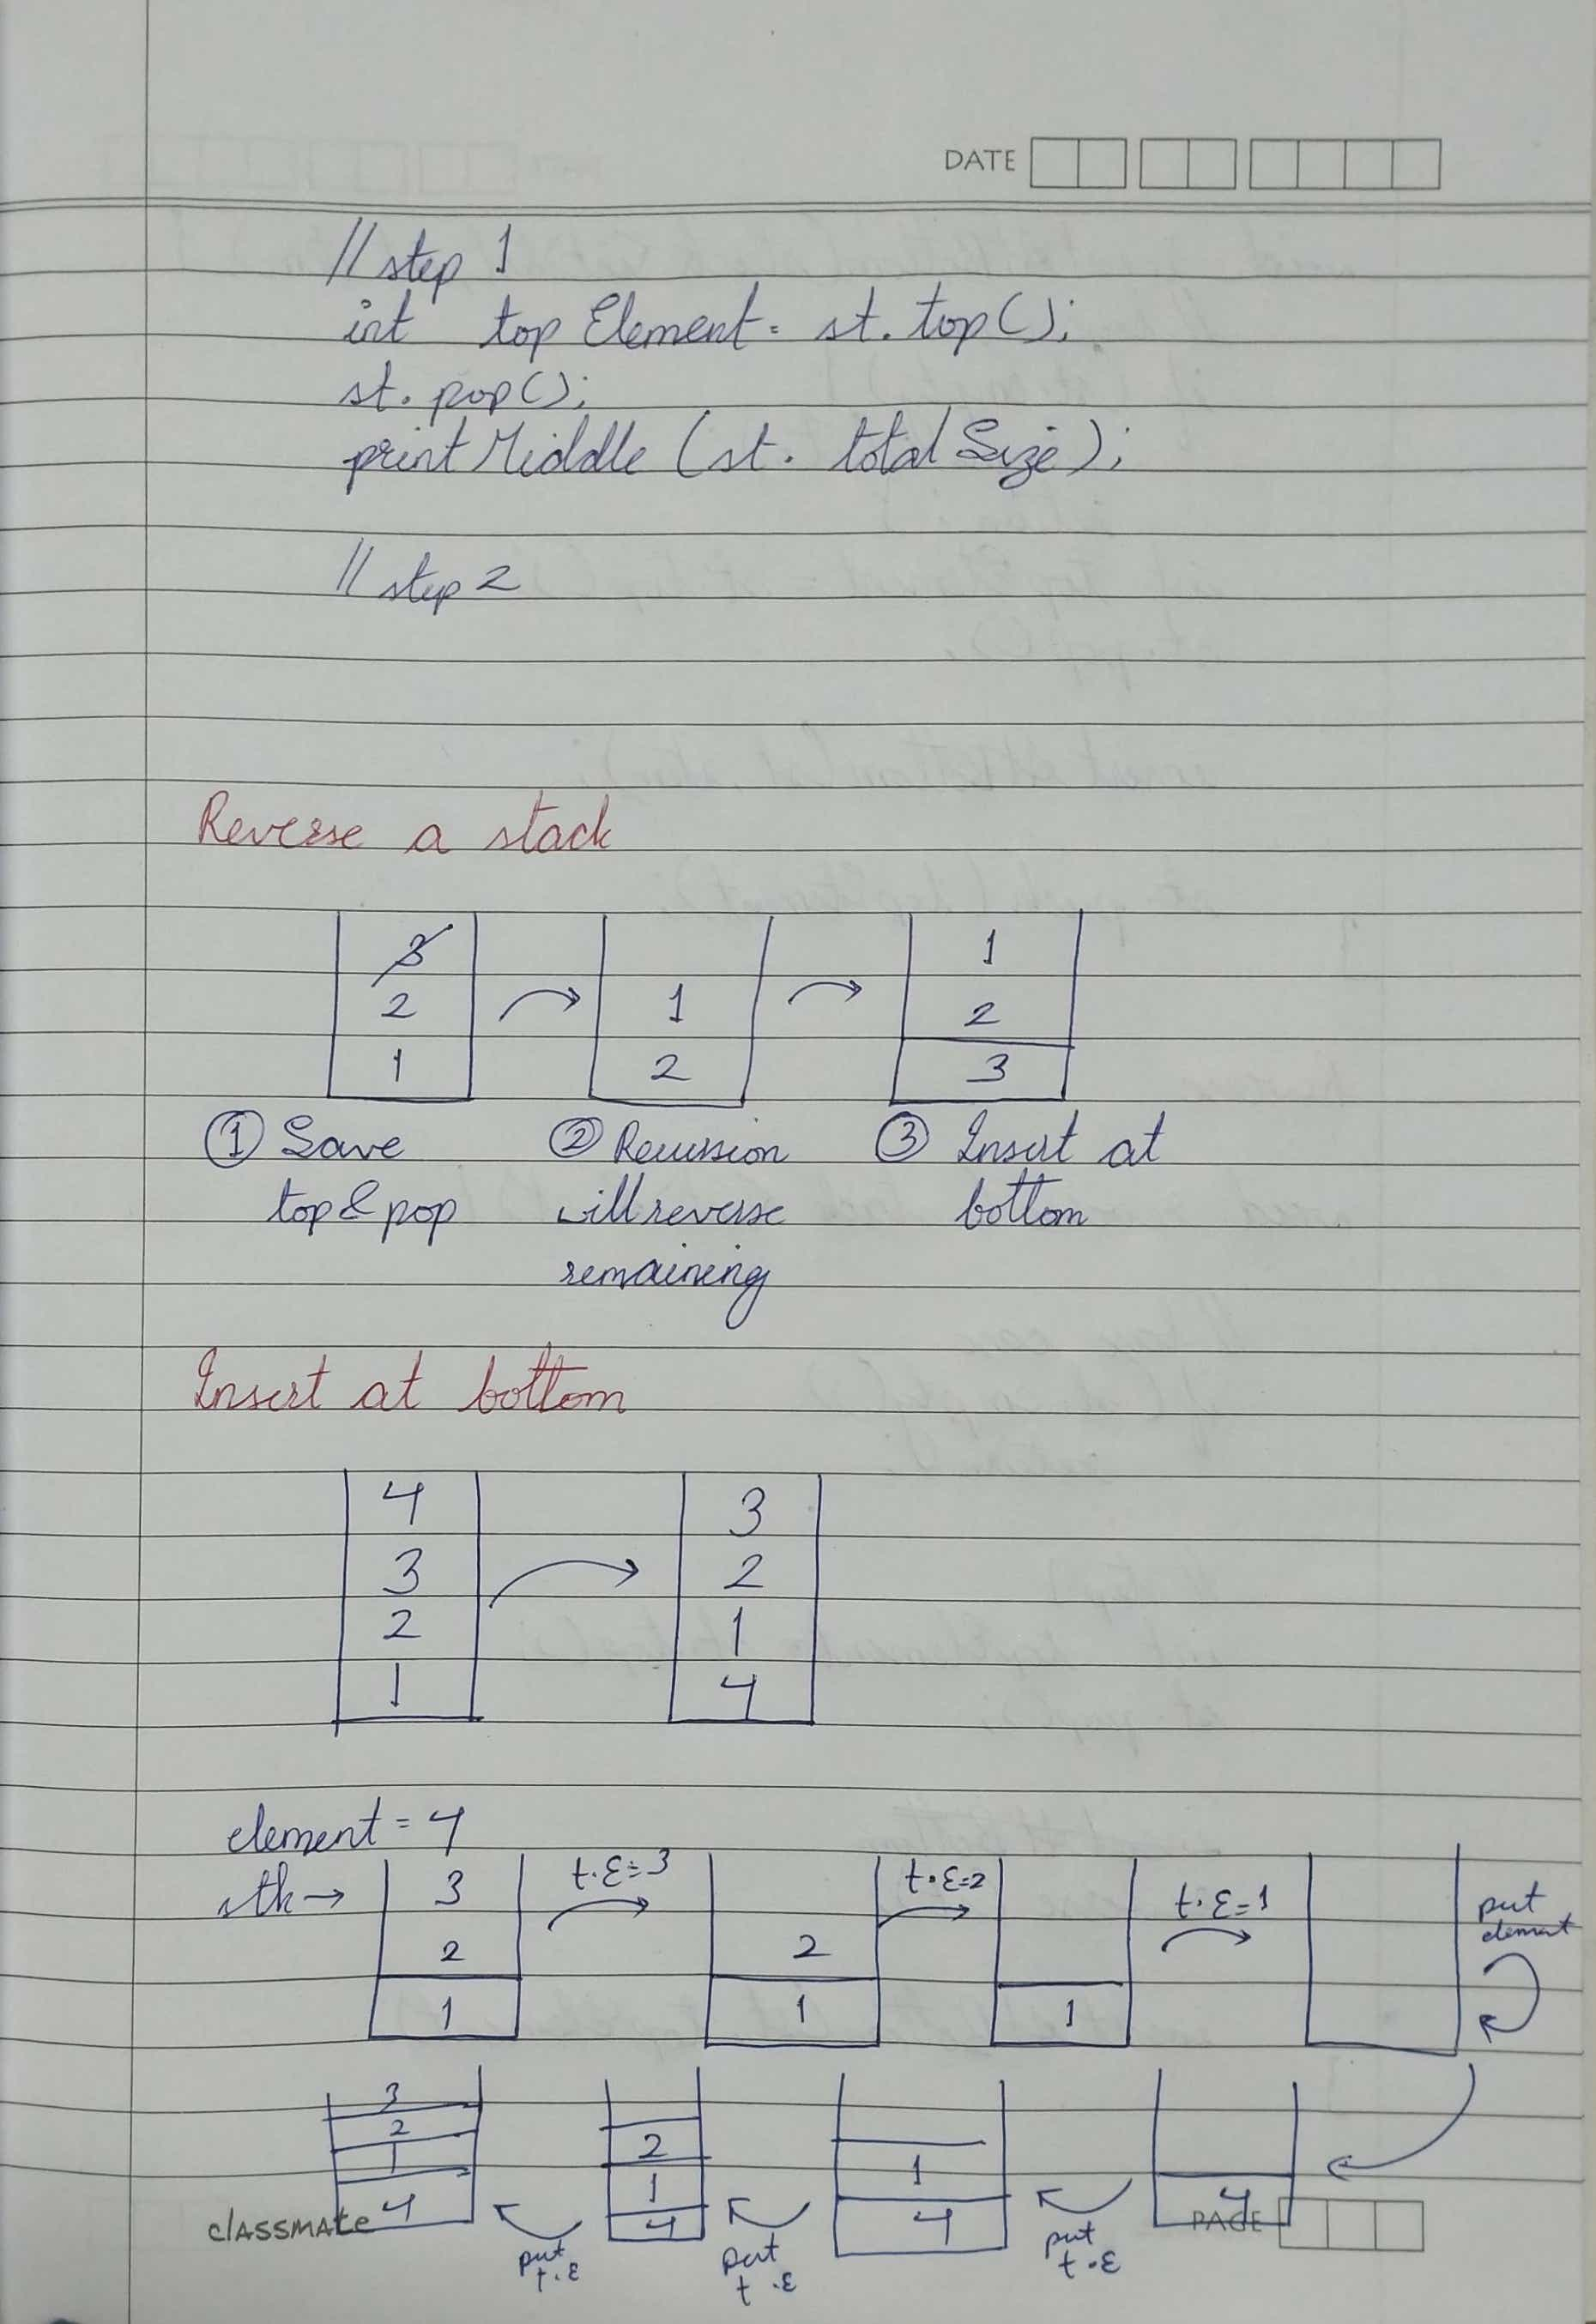 DATE
// step 1
int top Element = st. top();
st. pop();
print Middle (st. total Size);
// step 2
Reverse a stack
3
2
1
1
2
1
2
3
① Save
top & pop
② Recussion
will reverse
remaining
③ Insert at
bottom
Insert at bottom
4
3
2
1
3
2
1
4
element = 4
stk →
3
2
1
t.E=3
2
1
t.E=2
1
t.E=1
put
element
3
2
1
4
put
t.E
2
1
4
put
t.E
1
4
put
t.E
4
classmate
PAGE